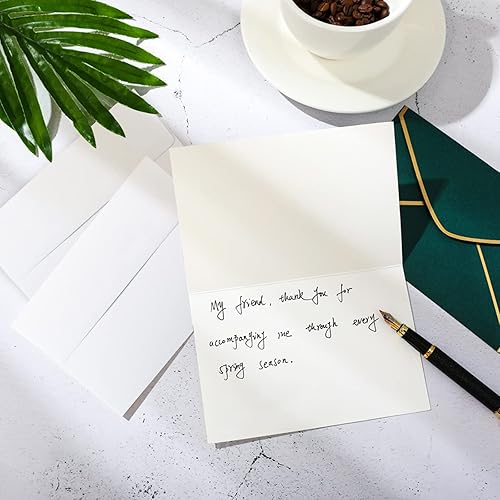 My friend, thank you for
accompanying me through every
spring season.